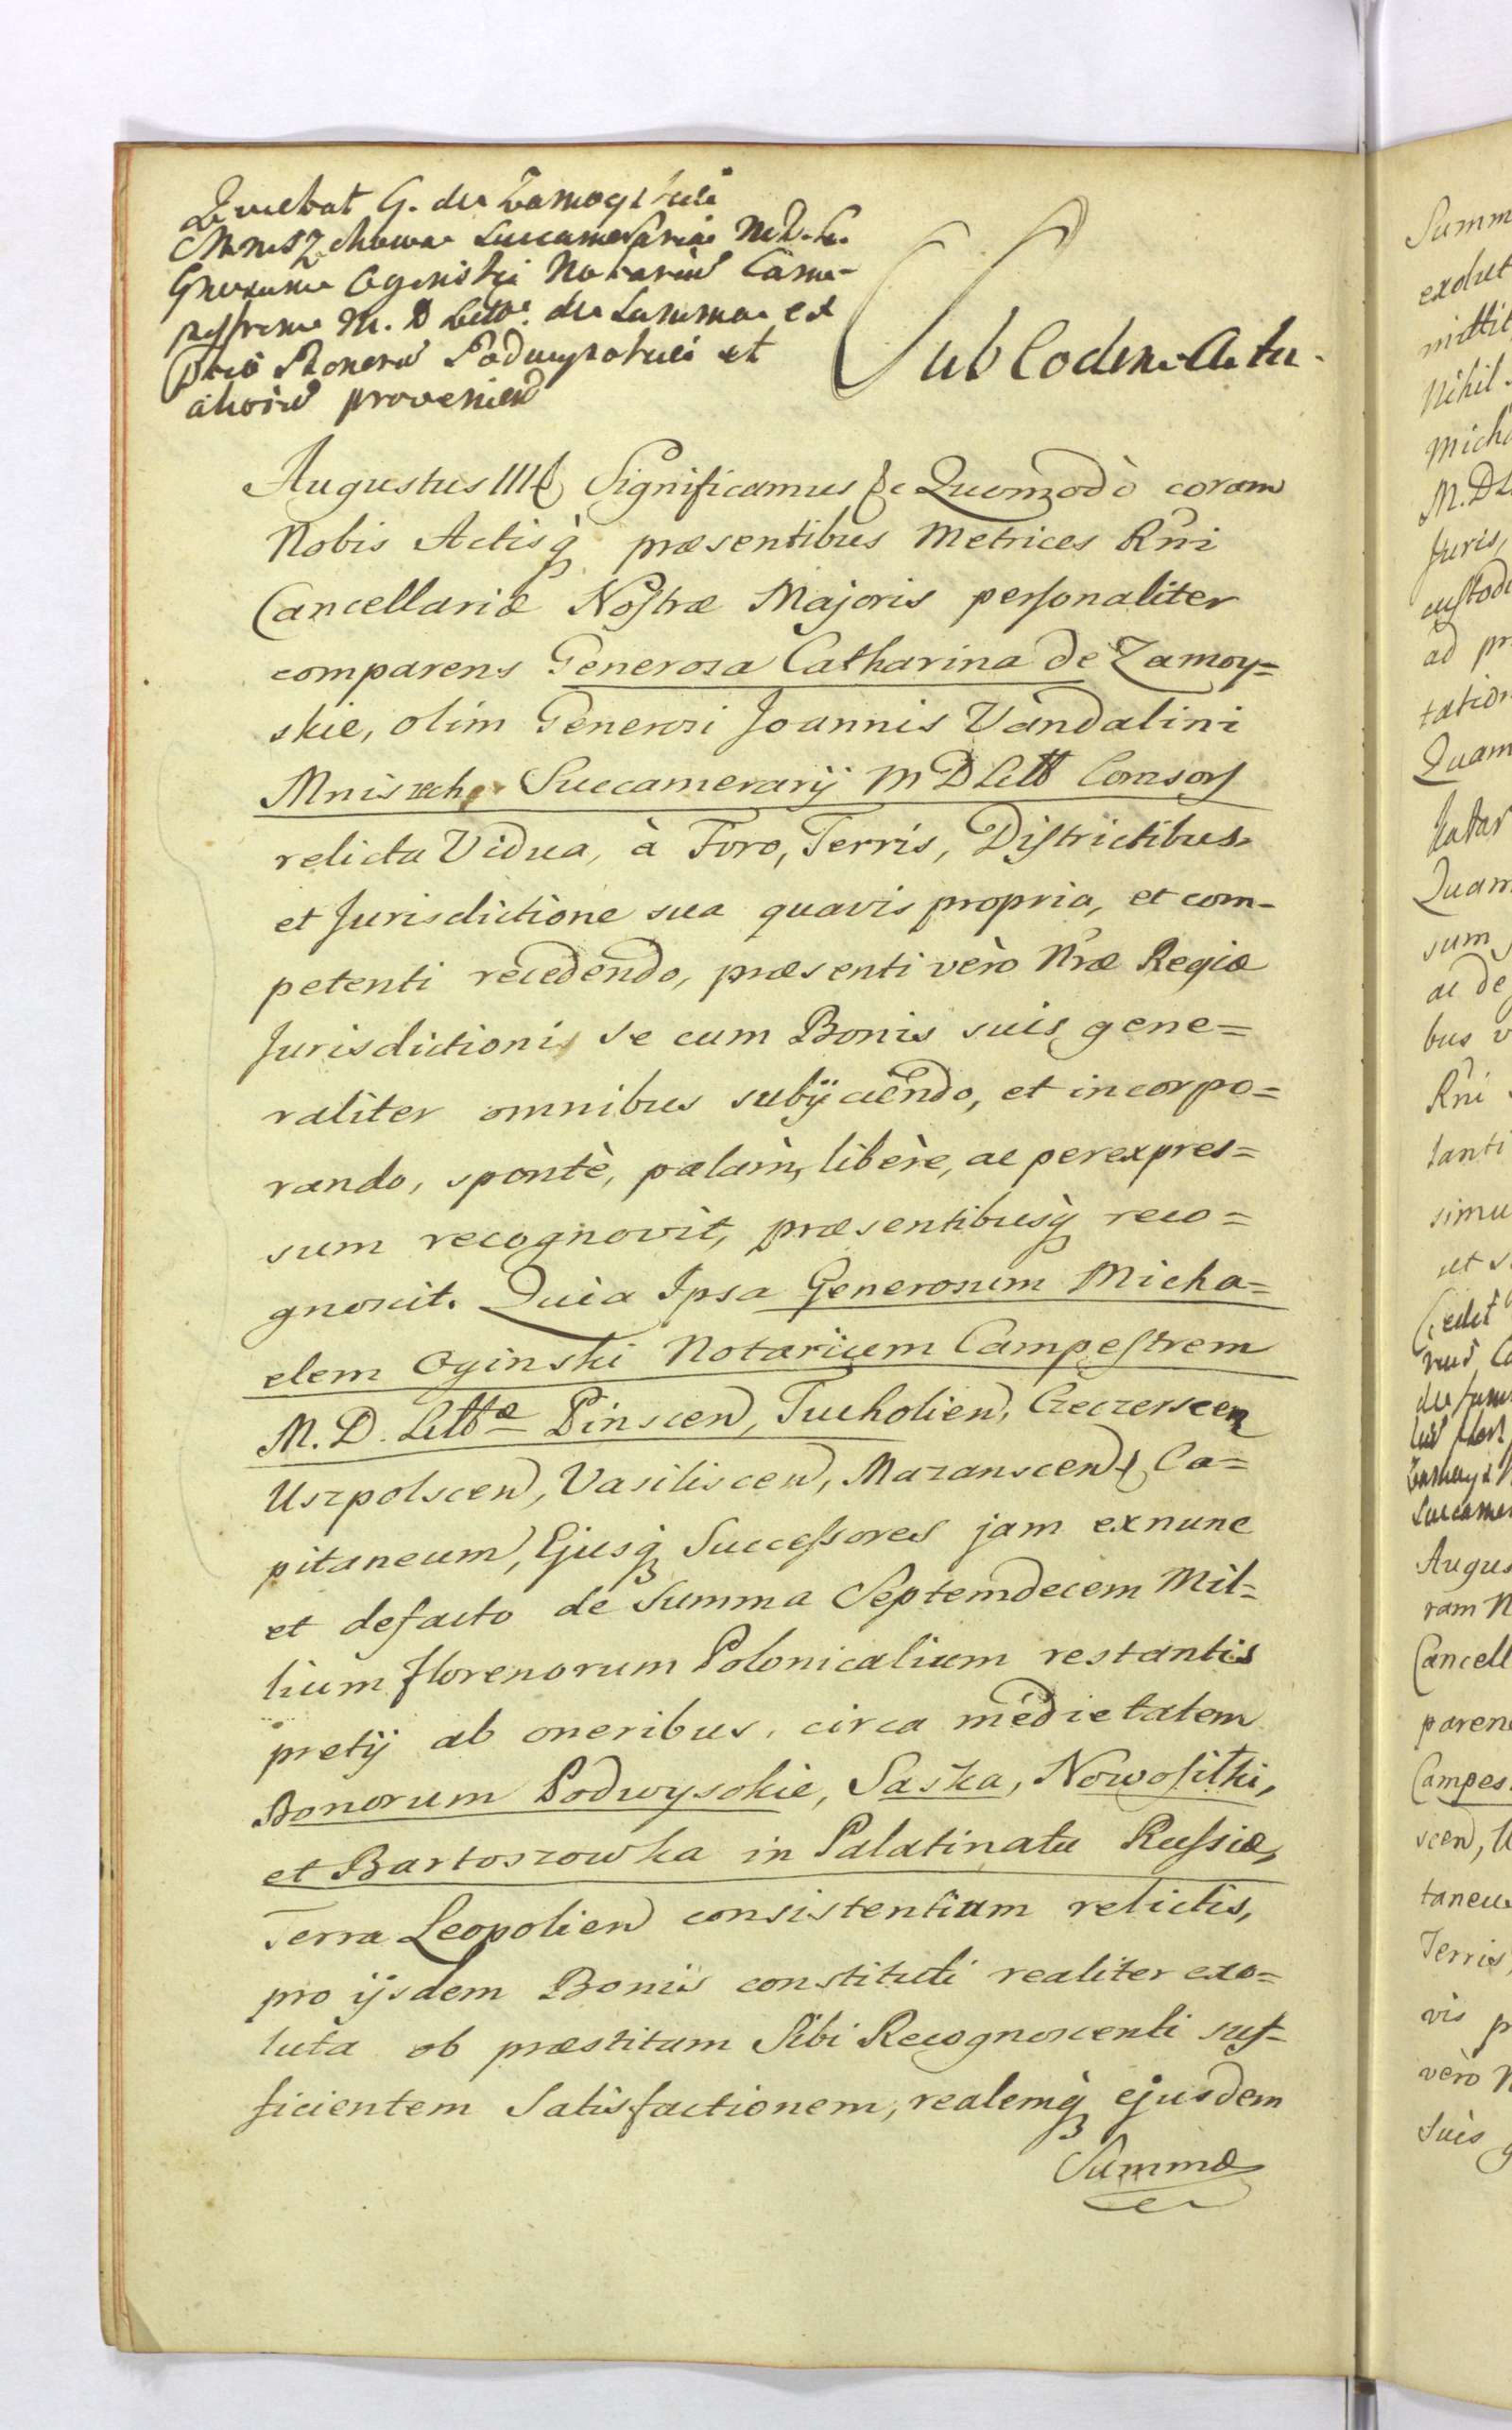 Quietat G. de Zamoyskie
Mniszchowa Succameraria M.D.L.
Gnosum Oginski Notariū Cam-
pestrem M. D Littae. de Summa ex
Bonorū Podwysokiei et
aliorū provenien
Sub Eodem Actu.
Augustus IIIti Significamus &c Quomodò coram
Nobis Actisq̀ præsentibus Metrices Rñi
Cancellariæ Nostræ Majoris personaliter
comparens Generosa Catharina de Zamoy=
skie, olim Generosi Joannis Vandalini
Mniszech Succamerarij M D Litt Consors
relicta Vidua, à Foro, Terris, Districtibus
et Jurisdictione sua quavis propria, et com-
petenti recedendo, præsenti verò Nræ Regiæ
Jurisdictioni se cum Bonis suis gene=
raliter omnibus subÿciendo, et incorpo=
rando, spontè, palàm, libère, ac perexpres=
sum recognovit, præsentibusq̀ reco=
gnoscit. Quia Ipsa Generosum Micha=
elem Oginski Notarium Campestrem
M. D. Littæ Pinscen, Tucholien, Czeczerscen
Uszpolscen, Vasiliscen, Mazanscen & Ca=
pitaneum, Ejusq̀ Successores jam exnunc
et defacto de Summa Septemdecem Mil=
lium Florenorum Polonicalium restantis
pretij ab oneribus circa medietatem
Bonorum Podwysokie, Saska, Nowosiłki,
et Bartoszowka in Palatinatu Russiæ,
Terra Leopolien consistentium relictis,
pro ijsdem Bonis constituti realiter exo=
luta ob præstitam Sibi Recognoscenti suf=
ficientem Satisfactionem, realemq̀ ejusdem
Summæ